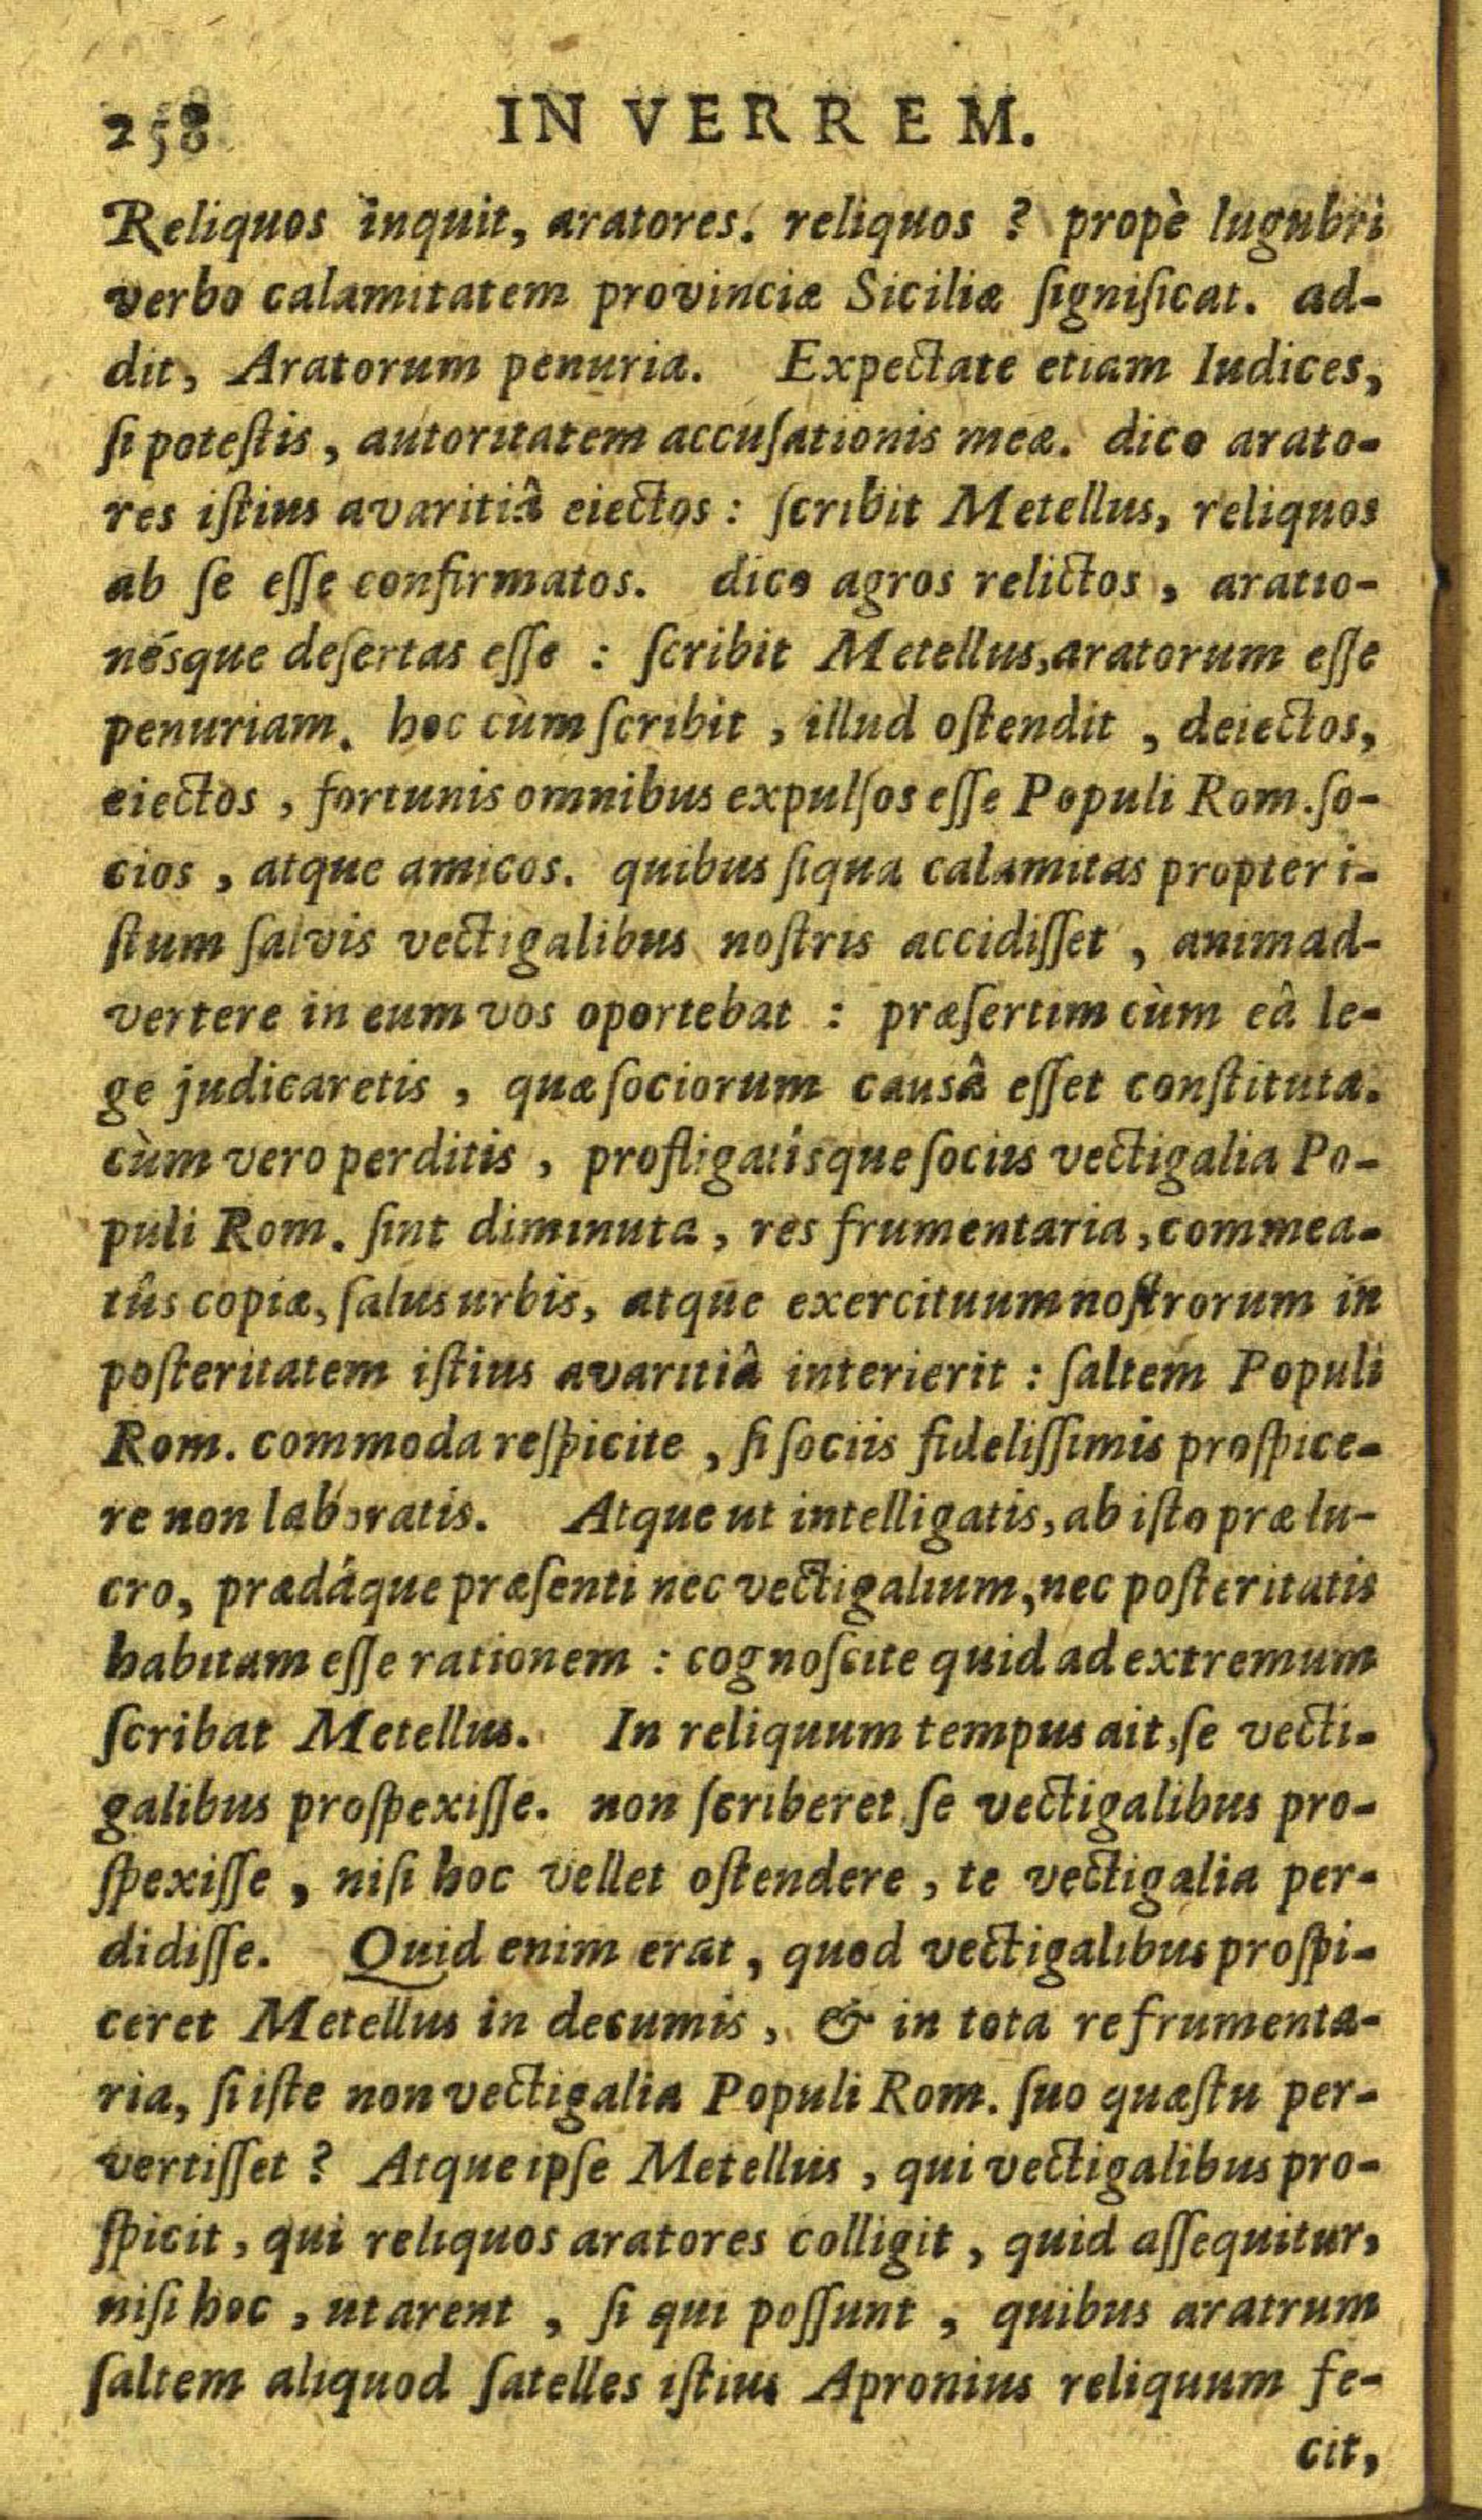 258 IN VERREM.
Reliquos inquit, aratores. reliquos ? propè lugubri
verbo calamitatem provinciæ Siciliæ ſignificat. ad-
dit, Aratorum penuria. Expectate etiam Iudices,
ſi poteſtis, autoritatem accuſationis meæ. dico arato-
res iſtius avaritiâ eiectos : ſcribit Metellus, reliquos
ab ſe eſſe confirmatos. dico agros relictos, aratio-
nésque deſertas eſſe : ſcribit Metellus, aratorum eſſe
penuriam. hoc cùm ſcribit, illud oſtendit, deiectos,
eiectos, fortunis omnibus expulſos eſſe Populi Rom. ſo-
cios, atque amicos. quibus ſiqua calamitas propter i-
ſtum ſalvis vectigalibus noſtris accidiſſet, animad-
vertere in eum vos oportebat : præſertim cùm eâ le-
ge judicaretis, quæ ſociorum causâ eſſet conſtituta.
cùm vero perditis, profligatísque ſociis vectigalia Po-
puli Rom. ſint diminuta, res frumentaria, commea-
tûs copiæ, ſalus urbis, atque exercituum noſtrorum in
poſteritatem iſtius avaritiâ interierit : ſaltem Populi
Rom. commoda reſpicite, ſi ſociis fideliſſimis proſpice-
re non laboratis. Atque ut intelligatis, ab iſto præ lu-
cro, prædáque præſenti nec vectigalium, nec poſteritatis
habitam eſſe rationem : cognoſcite quid ad extremum
ſcribat Metellus. In reliquum tempus ait, ſe vecti-
galibus proſpexiſſe. non ſcriberet ſe vectigalibus pro-
ſpexiſſe, niſi hoc vellet oſtendere, te vectigalia per-
didiſſe. Quid enim erat, quod vectigalibus proſpi-
ceret Metellus in decumis, & in tota re frumenta-
ria, ſi iſte non vectigalia Populi Rom. ſuo quæſtu per-
vertiſſet ? Atque ipſe Metellus, qui vectigalibus pro-
ſpicit, qui reliquos aratores colligit, quid aſſequitur,
niſi hoc, ut arent, ſi qui poſſunt, quibus aratrum
ſaltem aliquod ſatelles iſtius Apronius reliquum fe-
cit,